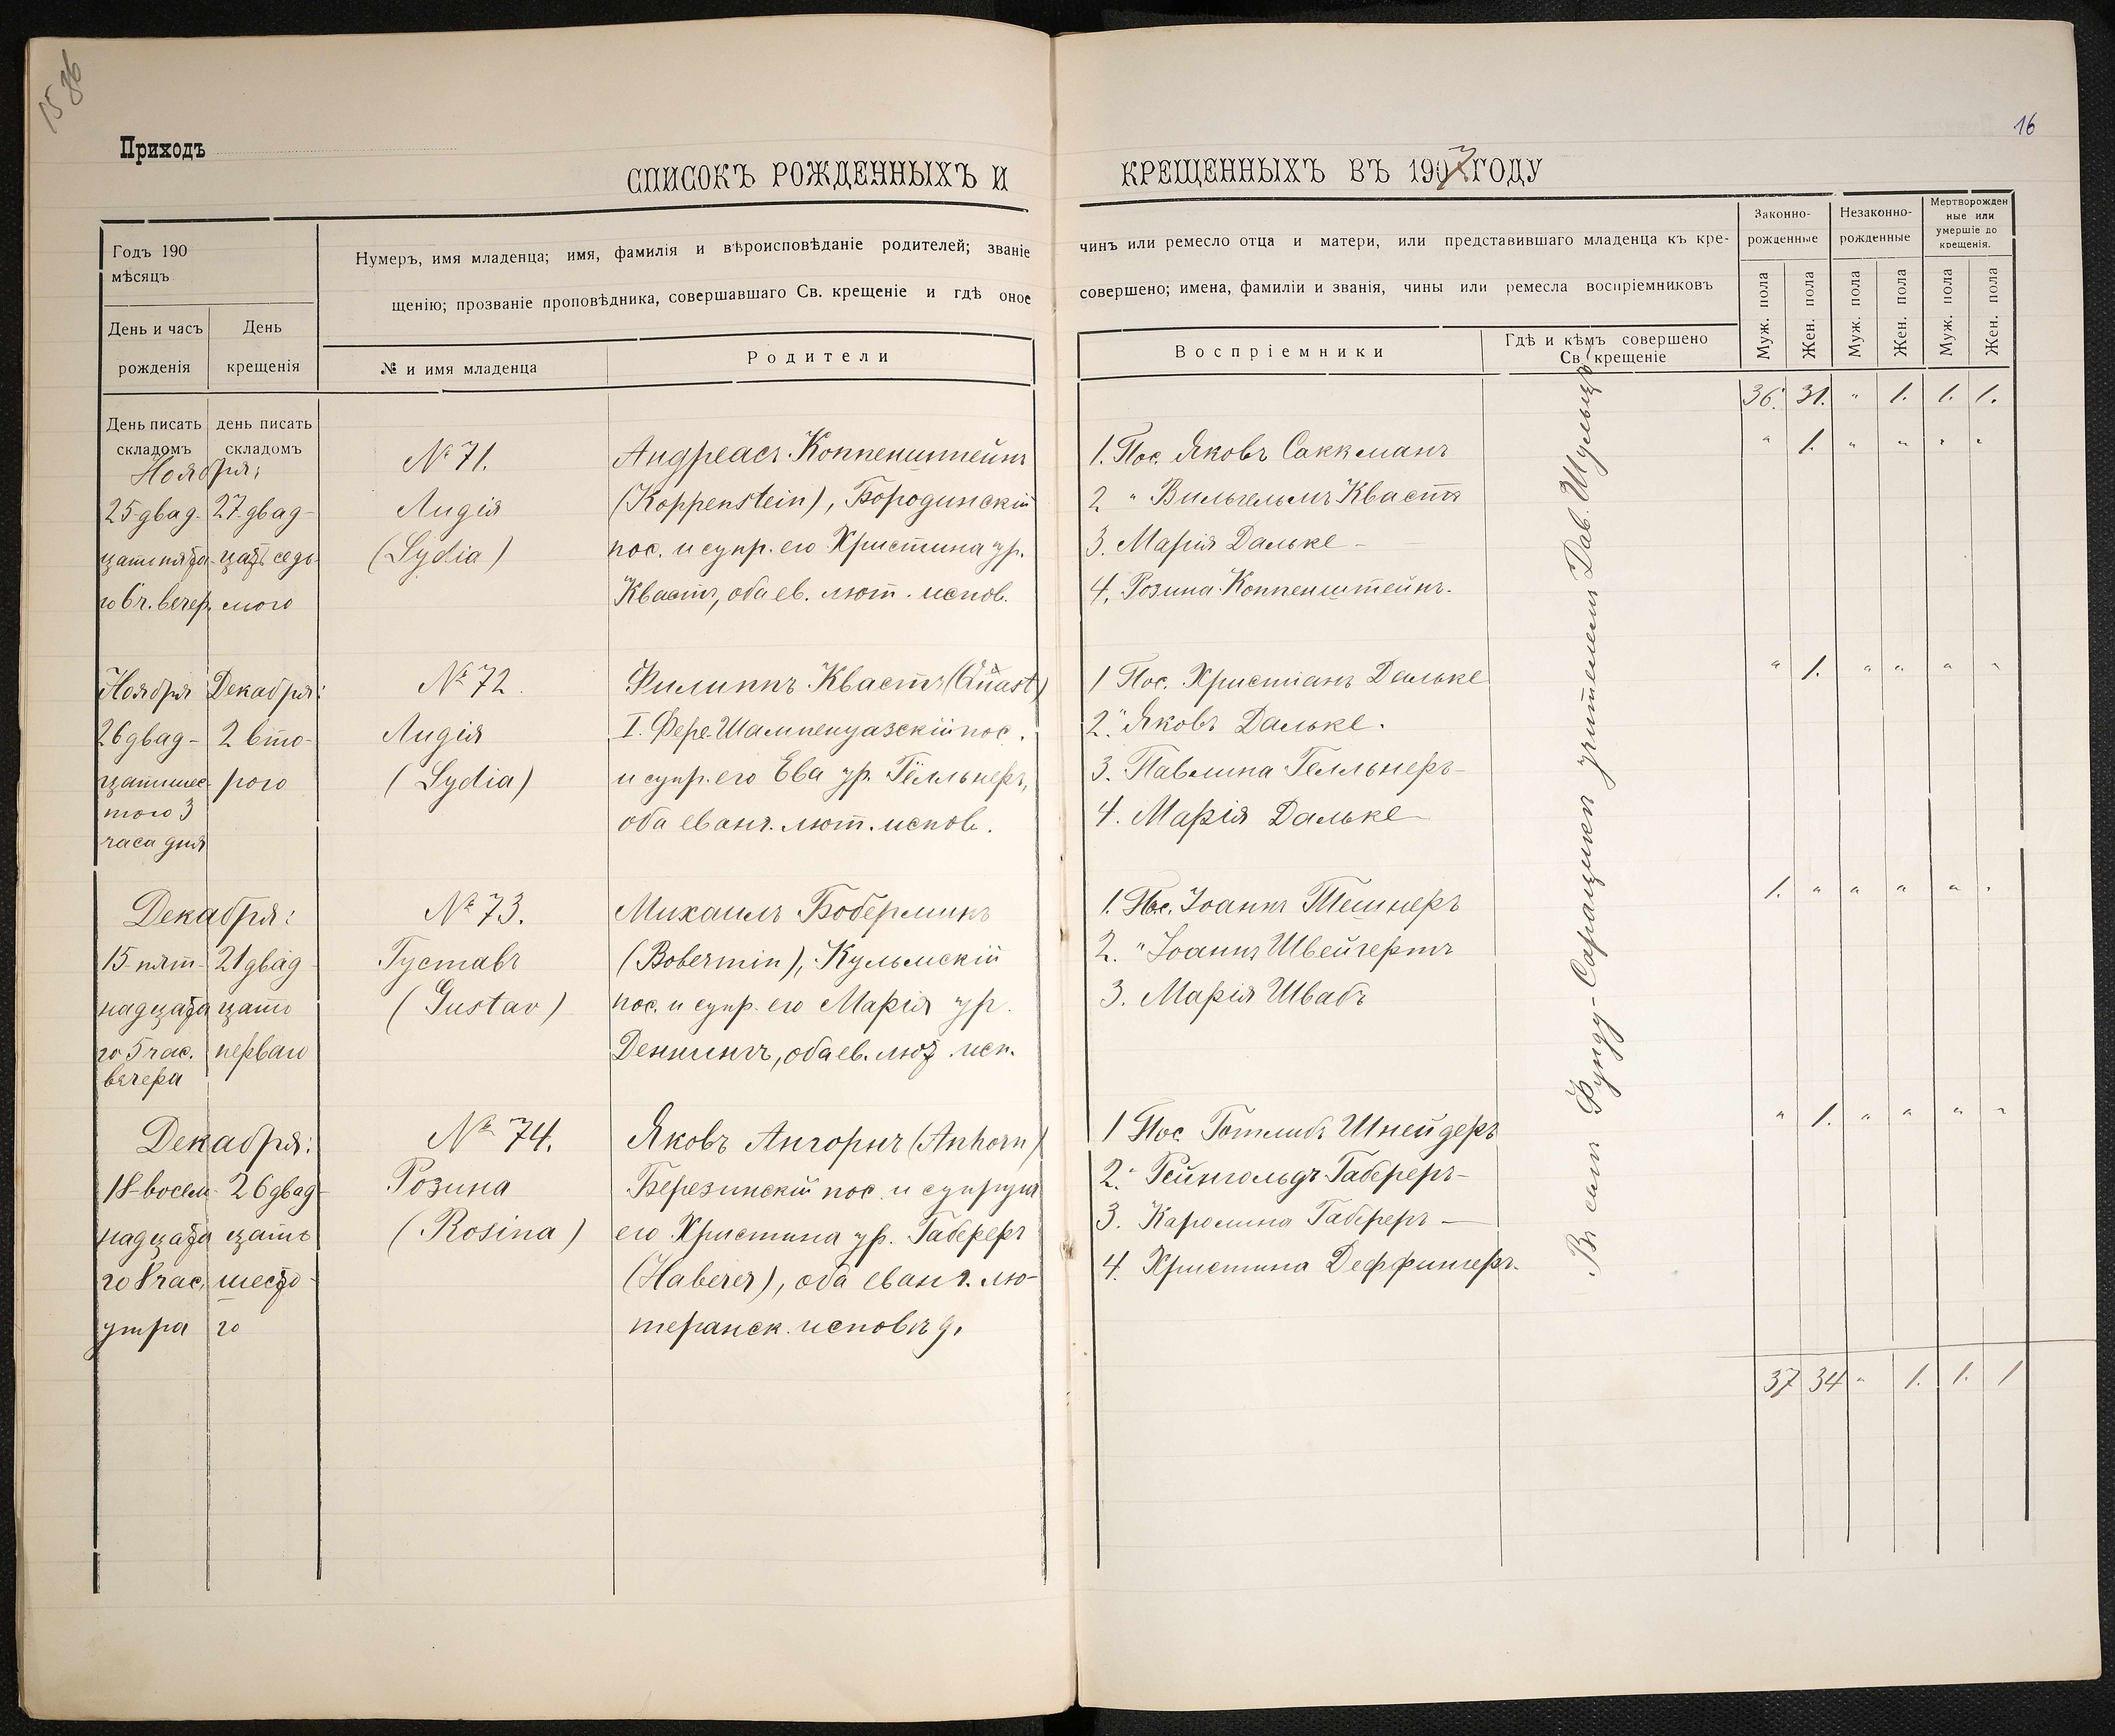 1586
16
Приходъ
СПИСОКЪ РОЖДЕННЫХЪ И КРЕЩЕННЫХЪ ВЪ 1903 ГОДУ
Годъ 190
мѣсяцъ
День и часъ рожденія
День крещенія
Нумеръ, имя младенца; имя, фамилія и вѣроисповѣданіе родителей; званіе чинъ или ремесло отца и матери, или представившаго младенца къ кре-
щенію; прозваніе проповѣдника, совершавшаго Св. крещеніе и гдѣ оное совершено; имена, фамиліи и званія, чины или ремесла воспріемниковъ
№ и имя младенца
Родители
Воспріемники
Гдѣ и кѣмъ совершено
Св. крещеніе
Законно-
рожденные
Незаконно-
рожденные
Мертворожден
ные или
умершіе до
крещенія.
Муж. пола
Жен. пола
Муж. пола
Жен. пола
Муж. пола
Жен. пола
36. 31. " 1. 1. 1.
День писать
складомъ
день писать
складомъ
Ноября:
25-двад-
цатипята-
го 6 ч. вечер.
27-двад-
цать седь-
мого
№ 71.
Лидія
(Lydia)
Андреасъ Коппенштейнъ
(Koppenstein), Бородинскій
пос. и супр. его Христина ур.
Квастъ, оба ев. лют. испов.
1. Пос. Яковъ Саккманъ
2 " Вильгельмъ Квастъ
3. Марія Дальке -
4. Розина Коппенштейнъ.
" 1. " " " "
Ноября
26 двад-
цатишес-
того 3
часа дня
Декабря:
2 вто-
рого
№ 72.
Лидія
(Lydia)
Филиппъ Квастъ (Quast)
I. Фере-Шампенуазскій пос.
и супр. его Ева ур. Гёлльнеръ,
оба еванг. лют. испов.
1 Пос. Христіанъ Дальке
2. " Яковъ Дальке.
3. Павлина Гелльнеръ-
4. Марія Дальке
" 1. " " " "
Декабря:
15-пят-
надцата
го 5 час.
вечера
21 двад-
цать
перваго
№ 73.
Густавъ
(Gustav)
Михаилъ Боберминъ
(Bobermin), Кульмскій
пос. и супр. его Марія ур.
Деннингъ, оба ев. лют. исп.
1. Пос. Іоаннъ Тешнеръ
2. " Іоаннъ Швейгертъ
3. Марія Швабъ
1. " " " " "
Декабря:
18-восем-
надцата
го 8 час.
утра
26 двад-
цать
шесто-
го
№ 74.
Розина
(Rosina)
Яковъ Ангорнъ (Anhorn)
Березинскій пос. и супруга
его Христина ур. Габереръ
(Haberer), оба еванг. лю-
теранск. исповѣд.
1 Пос. Готлибъ Шнейдеръ
2. " Рейнгольдъ Габереръ-
3. Каролина Габереръ —
4. Христина Деффингеръ.
" 1. " " " "
Въ сел. Фунду-Сарацика учителемъ Дав. Шульцъ
37 34 " 1. 1. 1